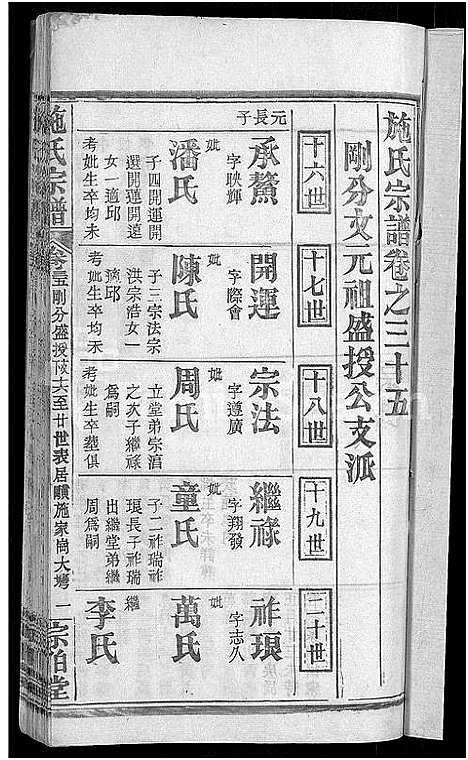 施氏宗譜卷之三十五
剛分文元祖盛授公支派
十六世
十七世
十八世
十九世
二十世
元長子
承鰲
字映輝
妣
潘氏
子四開運開
選開運開遠
女一適邱
考妣生卒均未
開運
字際會
妣
陳氏
子三宗法宗
洪宗浩女一
適邱
考妣生卒均未
宗法
字遵廣
妣
周氏
立堂弟宗滇
之次子繼祿
爲嗣
考妣生卒塟俱
繼祿
字翔發
妣
童氏
子二祚瑞祚
琅長子祚瑞
出繼堂弟繼
周爲嗣
祚琅
字志久
妣
萬氏
繼
李氏
施氏宗譜
剛分盛授
六至廿世表居
施家崗大塆
一
宗伯堂